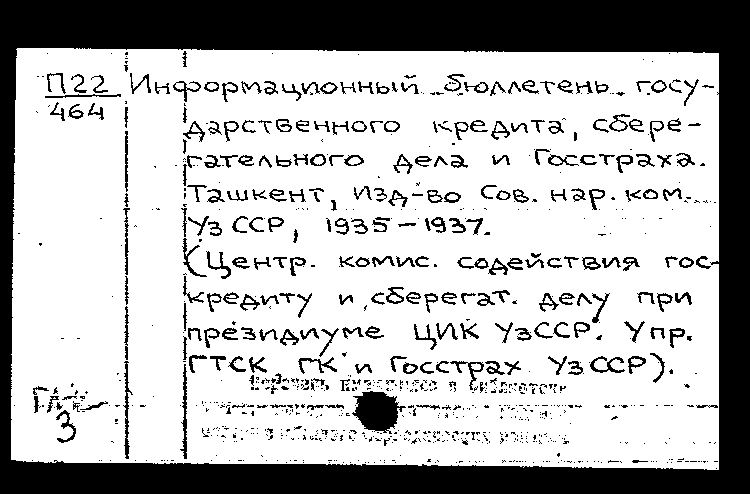 П22 Информационный бюллетень госу-
464
дарственного кредита, сбере-
гательного дела и Госстраха.
Ташкент, Изд-во Сов. нар. ком.
УзССР, 1935-1937.
(Центр. комис. содействия гос-
кредиту и сберегат. делу при
президиуме ЦИК УзССР. Упр.
ГТСК ГК и Госстрах УзССР).
в библиотеке
3